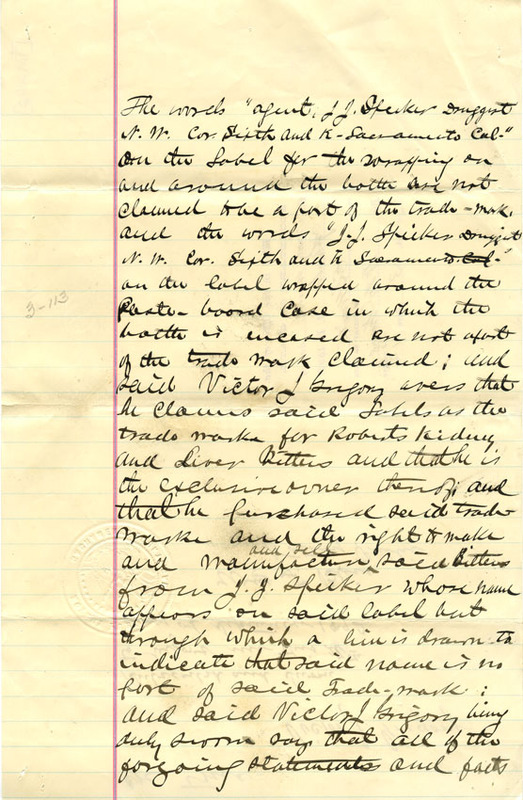 The words "agent, J. J. Spieker Druggist
N. W. Cor. Sixth and K - Sacramento Cal-"
on the Label for the wrapping on
and around the bottle are not
claimed to be a part of the trade-mark.
and the words "J. J. Spieker Druggist
N. W. Cor. Sixth and K Sacramento Cal-"
on the label wrapped around the
Paste-board Case in which the
bottle is incased are not apart
of the trade mark claimed; and
said Victor J Gregory avers that
he claims said Labels as the
trade marke for Roberts Kidney
and Liver Bitters and that he is
the exclusive owner thereof; and
that he purchased said trade
marke and the right to make
and sell
and manufacture, said Bitters
from J. J. Spieker whose name
appears on said label but
through which a line is drawn to
indicate that said name is no
part of said Trade-mark;
and said Victor J Gregory being
duly sworn says that all of the
forgoing statements and facts
3-113